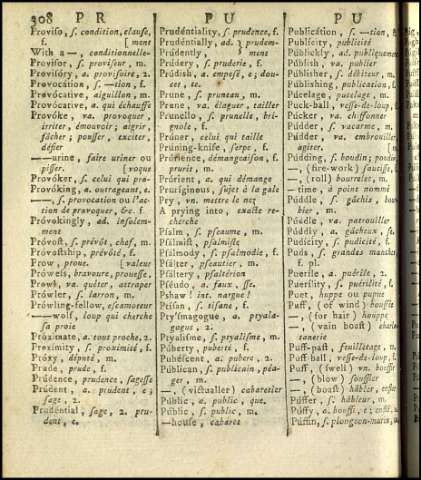 308 P R P U P U
Proviso, s. condition, clause,
f. [ment
With a —, conditionnelle-
Provisor, s. proviseur, m.
Provisóry, a. provisoire, 2.
Provocation, s. —tion, f.
Provócative, aiguillon, m.
Provócative, a. qui échauffe
Provóke, va. provoquer,
irriter, émouvoir; aigrir,
fâcher; pousser, exciter,
défier
——urine, faire uriner ou
pisser. [voque
Provóker, s. celui qui pro-
Provóking, a. outrageant, e.
——, s. provocation ou l'ac-
tion de provoquer, &c. f.
Provókingly, ad. insolem-
ment
Próvost, s. prévôt, chef, m.
Próvostship, prévôté, f.
Prow, proue. valeur
Prówess, bravoure, prouesse.
Prowl, va. quêter, attraper
Prówler, s. larron, m.
Prówling-fellow, escamoteur
—wolf, loup qui cherche
sa proie
Próximate, a. tout proche, 2.
Proximity, s. proximité, f.
Próxy, député, m.
Prude, prude, f.
Prúdence, prudence, sagesse
Prúdent, a. prudent, e;
sage, 2.
Prudéntial, sage, 2. pru-
dent, e.
Prudéntiality, s. prudence, f.
Prudéntially, ad. } prudem-
Prúdently, } ment
Prúdery, s. pruderie, f.
Prúdish, a. empesé, e; dou-
cet, te.
Prune, s. pruneau, m.
Prune, va. élaguer, tailler
Prunello, s. prunelle, bri-
gnole f.
Prúner, celui qui taille
Prúning-knife, serpe, f.
Prúrience, démangeaison, f.
prurit, m.
Prúrient, a. qui démange
Pruríginous, sujet à la gale
Pry, vn. mettre le nez
A prying into, exacte re-
cherche
Psalm, s. pseaume, m.
Psálmist, psalmiste
Psálmody, s. psalmodie, f.
Psálter, pseautier, m.
Psáltery, psaltérion
Pséudo, a. faux, sse.
Pshaw! int. nargue!
Ptisan, s. tisane, f.
Pty'smagogue, a. ptyala-
gogue, 2.
Ptyalisme, s. ptyalisme, m.
Púberty, puberté, f.
Pubéscent, a. pubere, 2.
Públican, s. publicain, péa-
ger, m.
—, (victualler) cabaretier
Públic, a. public, que.
Públic, s. public, m.
—house, cabaret
Publicátion, s. —tion, f.
Publícity, publicité
Públickly, ad. publiquement
Públish, va. publier
Públisher, s. débiteur, m.
Públishing, publication, f.
Pucelage, pucelage, m.
Puck-ball, vesse-de-loup, f.
Púcker, va. chiffonner
Púdder, s. vacarme, m.
Púdder, va. embrouiller,
agiter. [m.
Púdding, s. boudin; poudin,
—, (fire-work) saucisse, f.
—, (roll) bourrelet, m.
—time, à point nommé
Púddle, s. gâchis, bour-
bier, m.
Púddle, va. patrouiller
Púddly, a. gâcheux, se.
Pudícity, s. pudicité, f.
Puds, s. grandes manches
f. pl.
Puerile, a. puérile, 2.
Puerílity, s. puérilité, f.
Puet, huppe ou pupue
Puff, (of wind) bouffée
—, (for hair) houppe
—, (vain boast) charla-
tanerie
Puff-past, feuilletage, m.
Puff-ball, vesse-de-loup, f.
Puff, (swell) vn. bouffir
—, (blow) souffler
—, (boast) hâbler,
Púffer, s. hâbleur, m.
Púffy, a. bouffi, e;
Púffin, s. plongeon-marin, m.